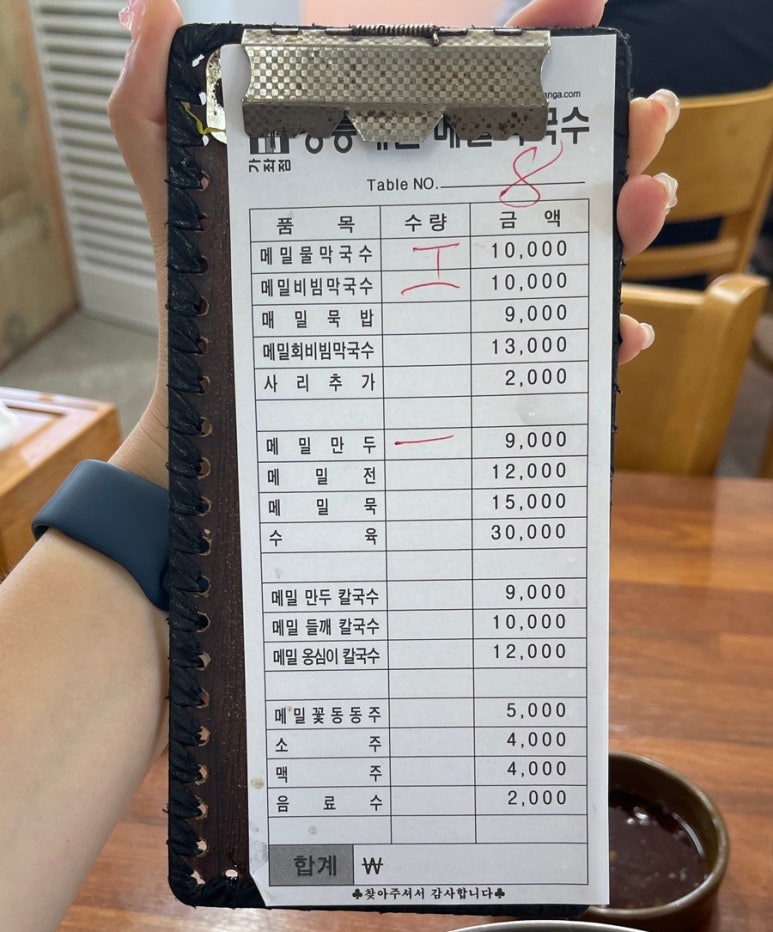 anga.com
가좌점
메밀 막국수
Table NO. 8
품 목 수 량 금 액
메밀물막국수 10,000
메밀비빔막국수 10,000
매 밀 묵 밥 9,000
메밀회비빔막국수 13,000
사 리 추 가 2,000
메 밀 만 두 9,000
메 밀 전 12,000
메 밀 묵 15,000
수 육 30,000
메밀 만두 칼국수 9,000
메밀 들깨 칼국수 10,000
메밀 옹심이 칼국수 12,000
메밀꽃동동주 5,000
소 주 4,000
맥 주 4,000
음 료 수 2,000
합계 ₩
♣찾아주셔서 감사합니다♣